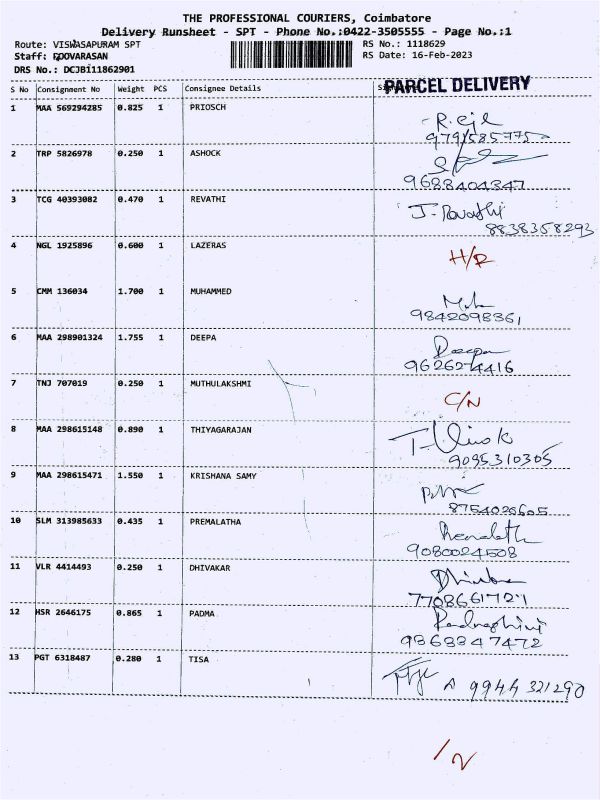 THE PROFESSIONAL COURIERS, Coimbatore
Delivery Runsheet - SPT - Phone No.:0422-3505555 - Page No.:1
Route: VISWASAPURAM SPT
RS No.: 1118629
Staff: POOVARASAN
RS Date: 16-Feb-2023
DRS No.: DCJBI11862901
PARCEL DELIVERY
S No Consignment No Weight PCS Consignee Details
1 MAA 569294285 0.825 1 PRIOSCH
9791585775
2 TRP 5826978 0.250 1 ASHOCK
9688404347
3 TCG 40393082 0.470 1 REVATHI J. Revathi
8838358293
4 NGL 1925896 0.600 1 LAZERAS H/R
5 CMM 136034 1.700 1 MUHAMMED
9842098361
6 MAA 298901324 1.755 1 DEEPA Deepa
9626274416
7 TNJ 707019 0.250 1 MUTHULAKSHMI C/N
8 MAA 298615148 0.890 1 THIYAGARAJAN
9095310305
9 MAA 298615471 1.550 1 KRISHANA SAMY
8754026605
10 SLM 313985633 0.435 1 PREMALATHA
9080024508
11 VLR 4414493 0.250 1 DHIVAKAR
7708661721
12 HSR 2646175 0.865 1 PADMA
9363347472
13 PGT 6318487 0.280 1 TISA
9944321290